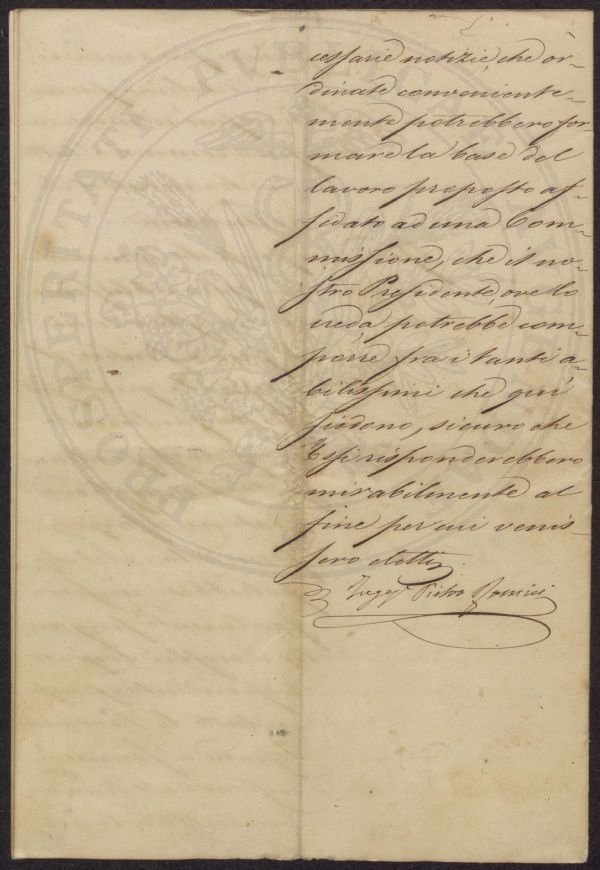 cessarie notizie, che or-
dinate conveniente-
mente potrebbero for-
mare la base del
lavoro proposto af-
fidato ad una Com-
missione, che il no-
stro Presidente, ove lo
creda potrebbe com-
porre fra i tanti a-
bilissimi che quì
siedono, sicuro che
Essi risponderebbero
mirabilmente al
fine per cui venis-
sero eletti.
Ingeg.r Pietro
PUBLICAE
POSTERITATI